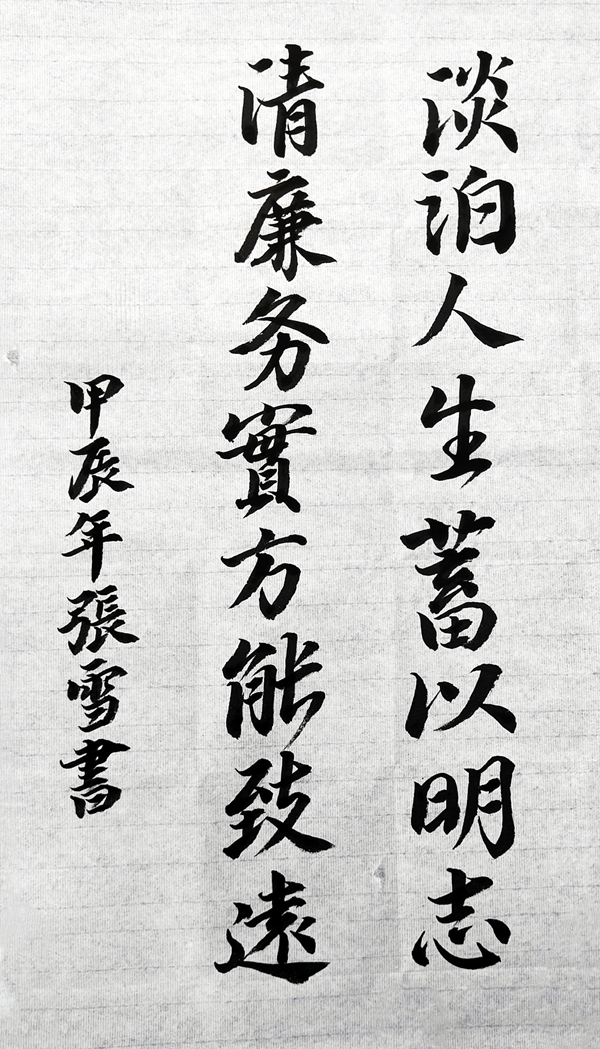 淡泊人生蓄以明志
清廉务實方能致遠
甲辰年張雪書